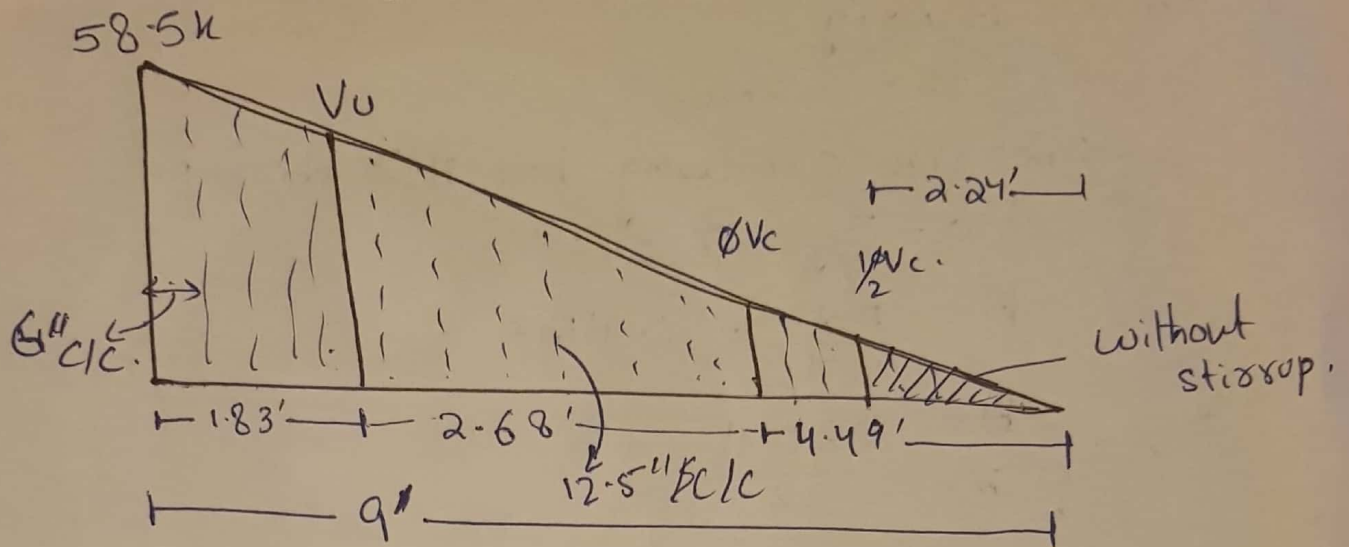 58.5k
Vu
2.24'
ØVc
1/2 ØVc.
6" C/C.
without
stirrup.
1.83'
2.68'
4.49'
12.5" C/C
9"